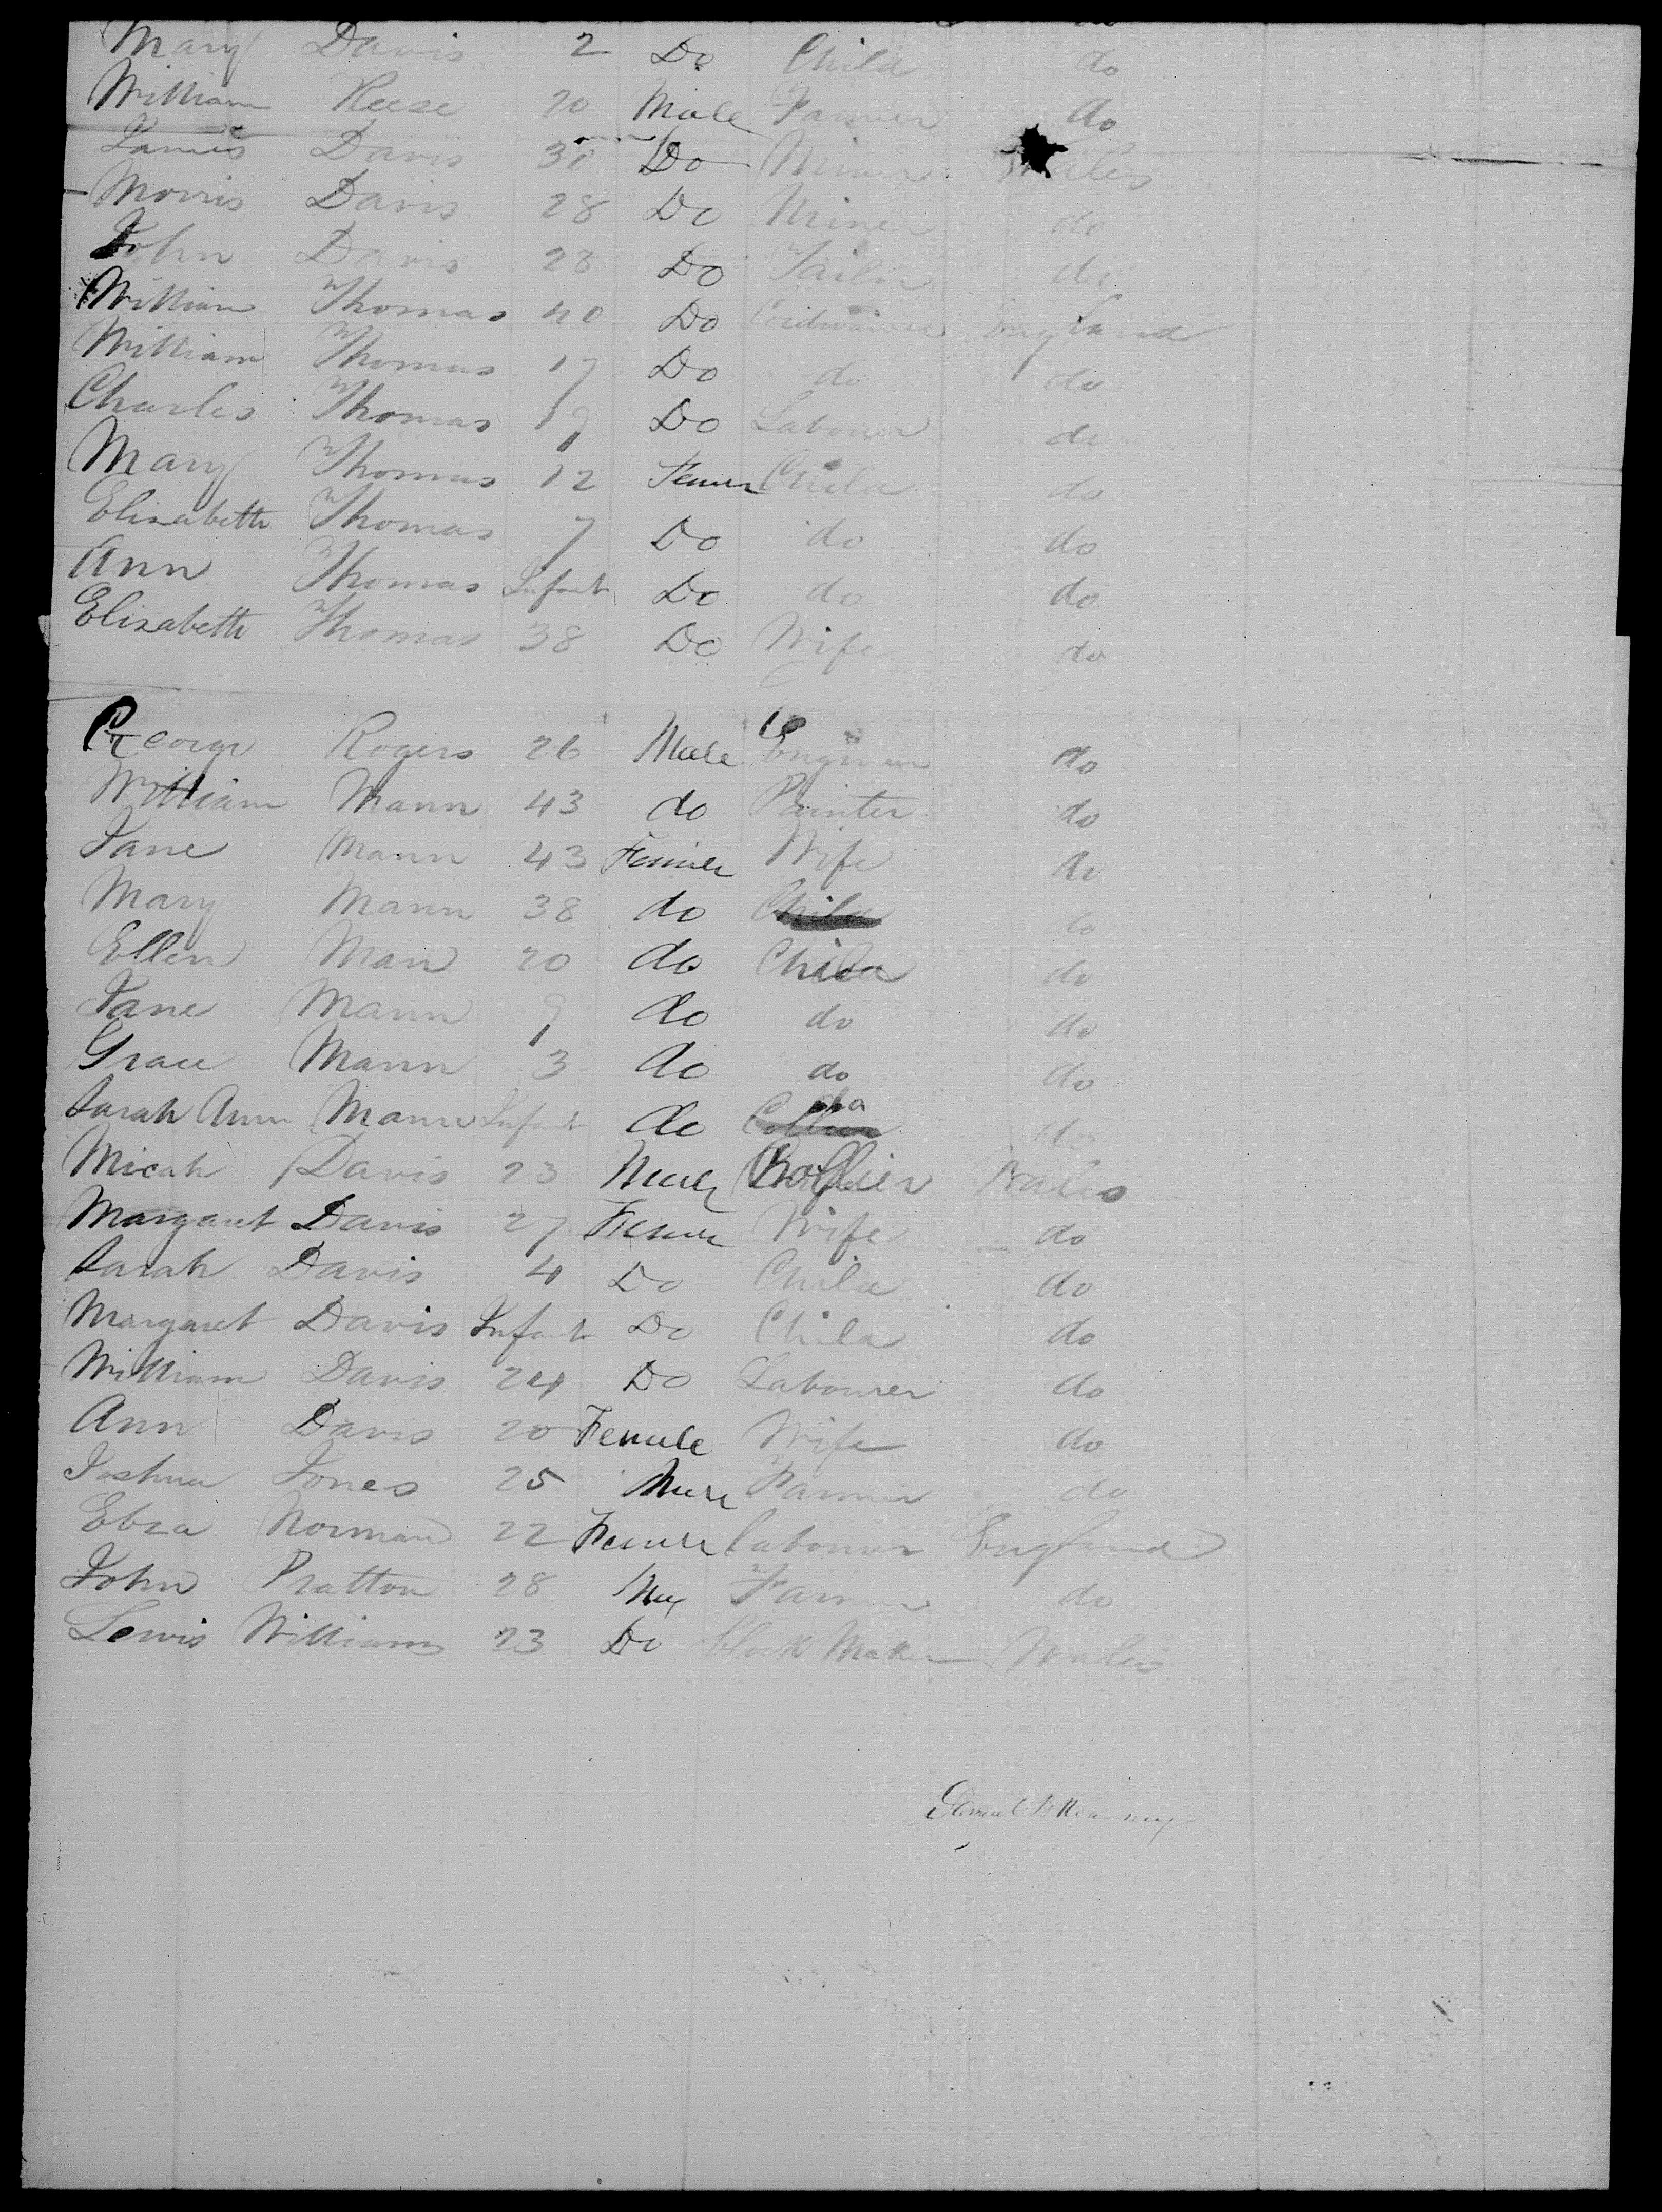 Mary Davis 2 Do Child do
William Reese 20 Male Farmer do
James Davis 30 Do Miner Wales
Morris Davis 28 Do Miner do
John Davis 28 Do Tailor do
William Thomas 40 Do Cordwainer England
William Thomas 17 Do do do
Charles Thomas 19 Do Labourer do
Mary Thomas 12 Female Child do
Elizabeth Thomas 7 Do do do
Ann Thomas Infant Do do do
Elizabeth Thomas 38 Do Wife do
George Rogers 26 Male Engineer do
William Mann 43 do Painter do
Jane Mann 43 Female Wife do
Mary Mann 38 do do
Ellen Man 20 do Child do
Jane Mann 9 do do do
Grace Mann 3 do do do
Sarah Ann Mann Infant do do
Micah Davis 23 Male Collier Wales
Margaret Davis 27 Female Wife do
Sarah Davis 4 Do Child do
Margaret Davis Infant Do Child do
William Davis 24 Do Labourer do
Ann Davis 20 Female Wife do
Joshua Jones 25 Male Farmer do
Norman 22 Female labourer England
John Pratton 28 Farmer do
Lewis Williams 23 Do Clock Maker Wales
Samuel